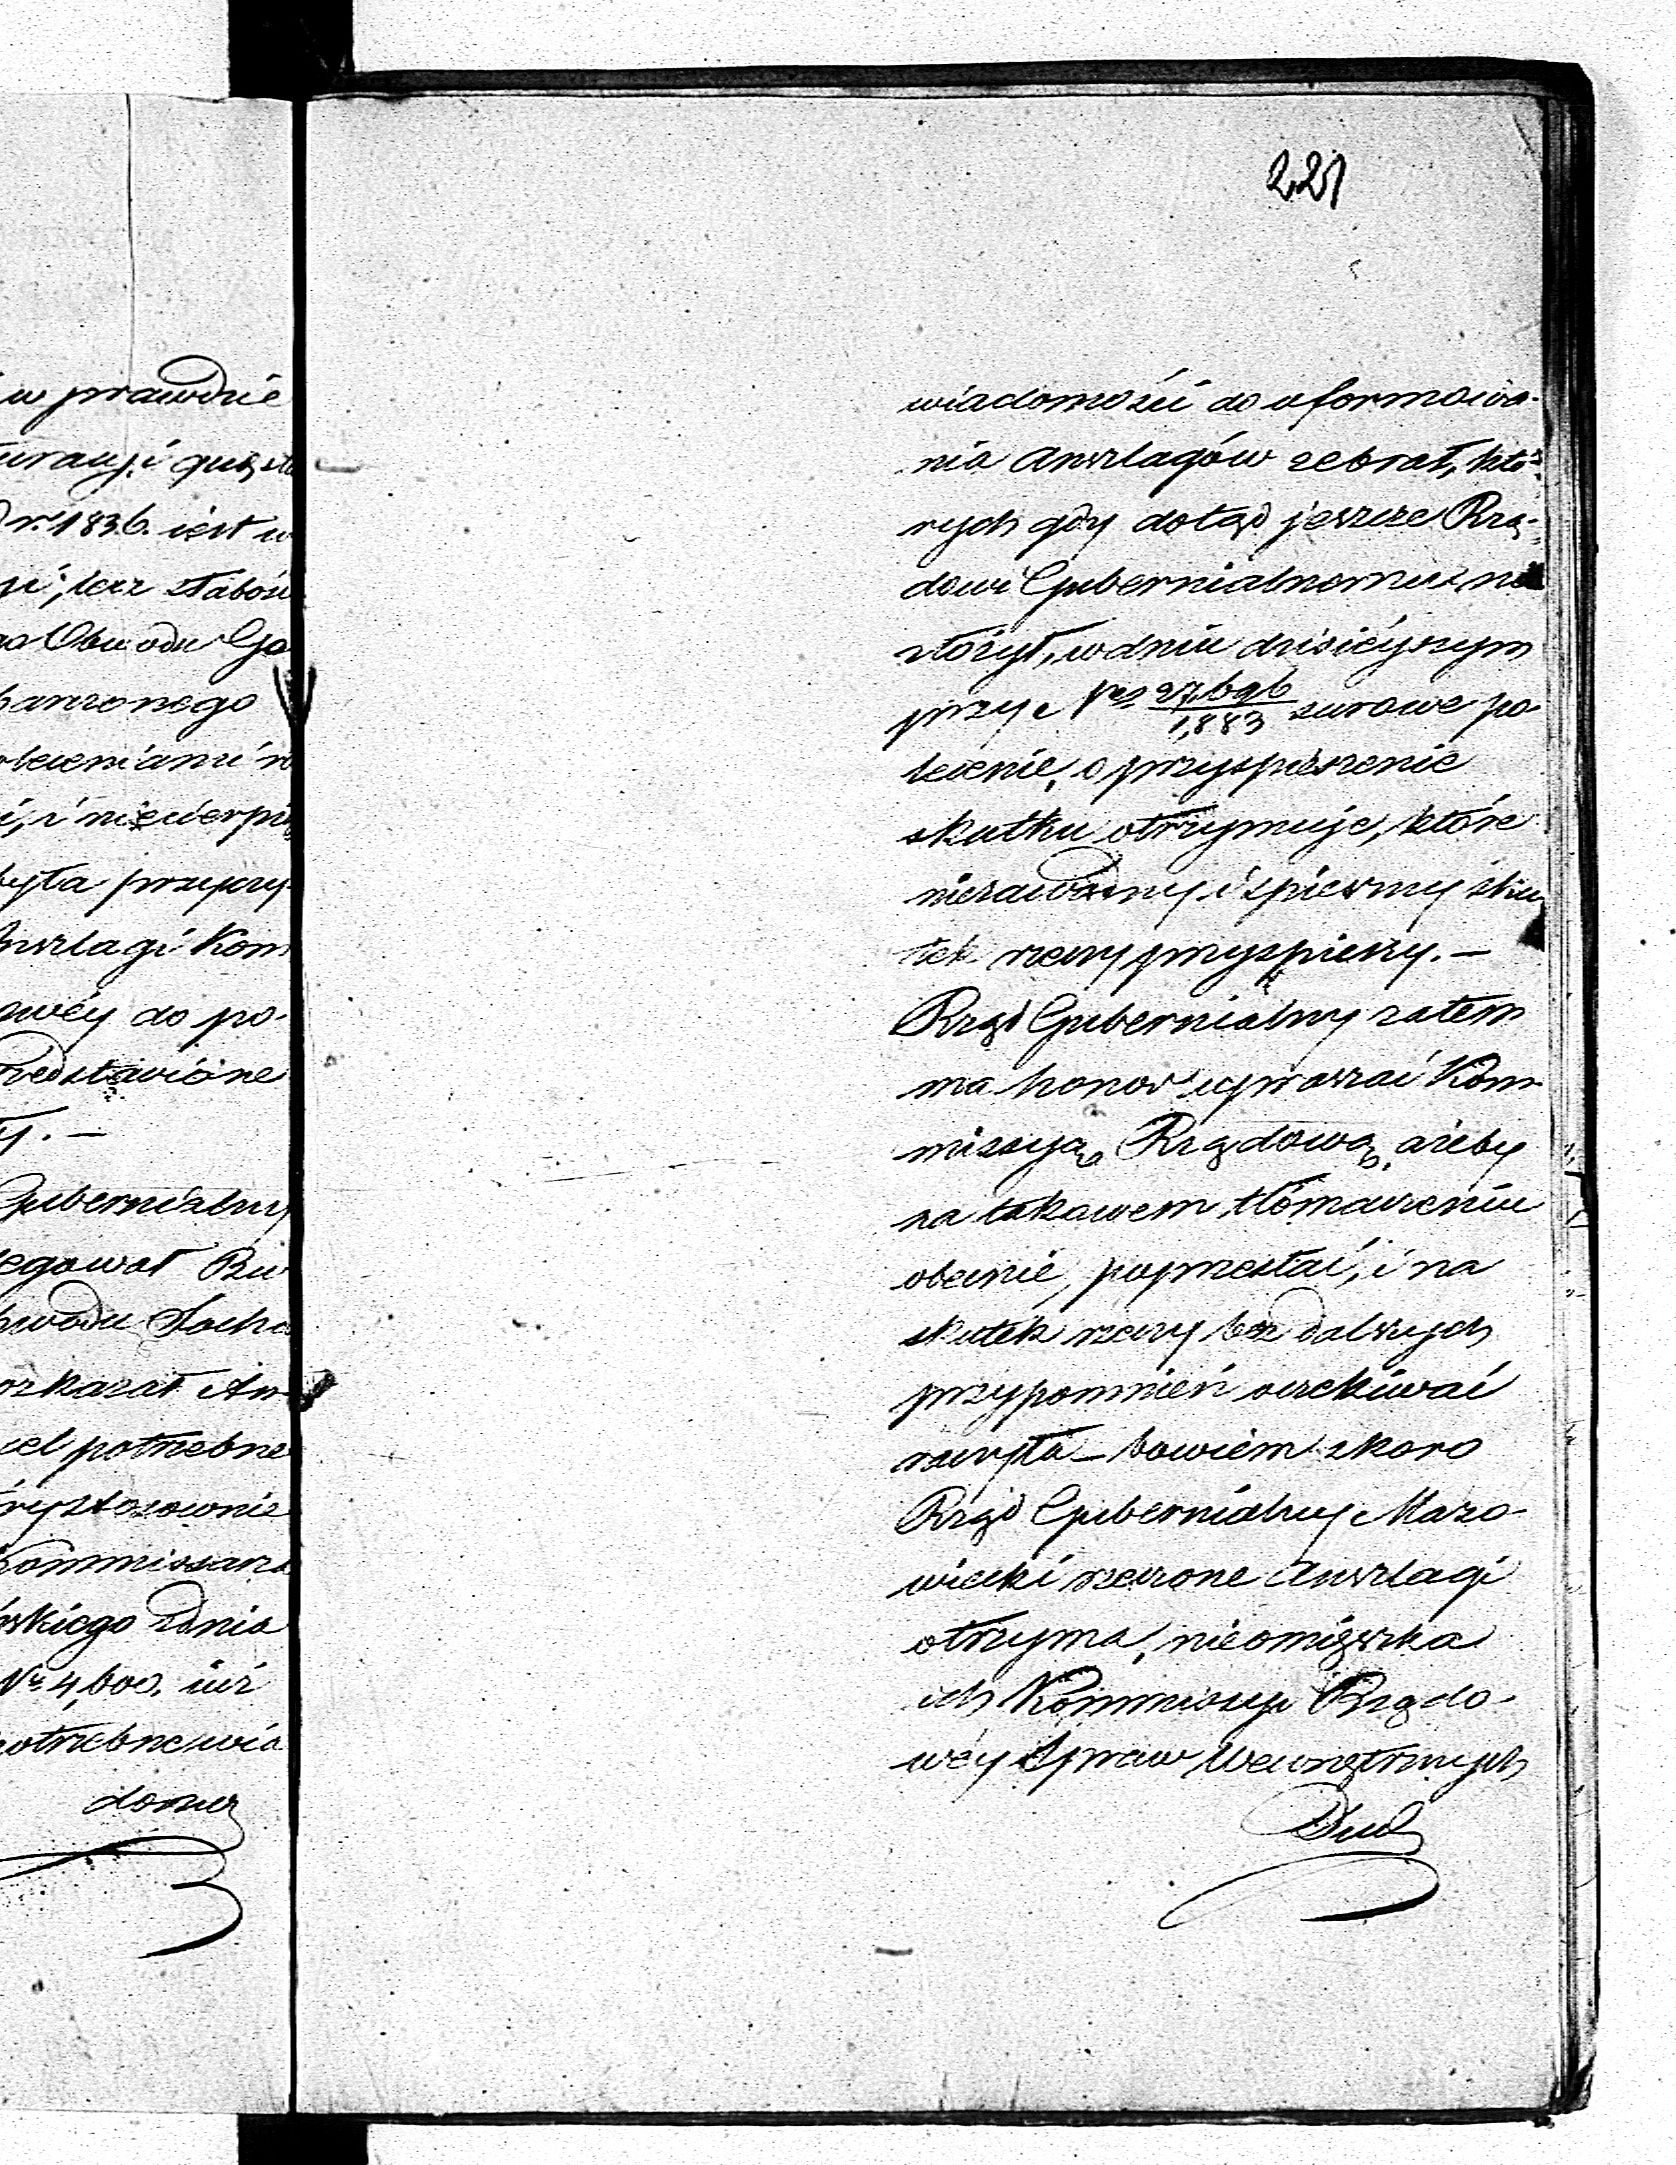 221
w prawdzie
r. 1836. iest w
, lecz słaboś
Obwodu Go
barczonego
była przyczy
Anszlagi Kom
do po-
redstawione
Gubernialny
egował Bu
bwodu Socha
ozkazał An
cel potrzebne
Kommissarza
skiego z dnia
Nr 4,600. iuż
potrzebne wia
domo
wiadomości do uformowa-
nia anszlagów zebrał, któ-
rych gdy dotąd jeszcze Rzą-
dowi Gubernialnemu nie
złożył, w dniu dzisieyszym
przy Nrze 27,696/1,883 surowe po-
lecenie, o przyspieszenie
skutku otrzymuje, które
niezawodny i spieszny sku-
tek rzeczy przyspieszy. —
Rząd Gubernialny zatem
ma honor upraszać Kom-
missyą Rządową, ażeby
na takowem tłómaczeniu
obecnie, poprzestać, i na
skutek rzeczy bez dalszych
przypomnień oczekiwać
raczyła — bowiem skoro
Rząd Gubernialny Mazo-
wiecki rzeczone Anszlagi
otrzyma, nieomięszka
ich Kommissyi Rządo-
wéy Spraw Wewnętrznych